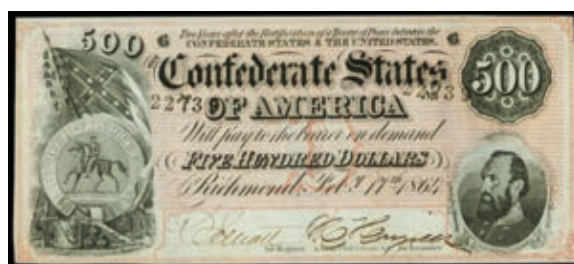 500
Two Years after the Ratification of a Treaty of Peace between the
CONFEDERATE STATES & THE UNITED STATES,
Confederate States
22739
OF AMERICA
500
Will pay to the bearer on demand
FIVE HUNDRED DOLLARS
Richmond, Feb. y 17th 1864